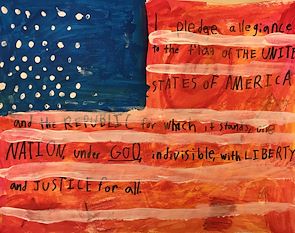 I pledge allegiance
to the flag of THE UNITED
STATES OF AMERICA
and the REPUBLIC for which it stands, one
NATION, under GOD, indivisible, with LIBERTY
and JUSTICE for all.